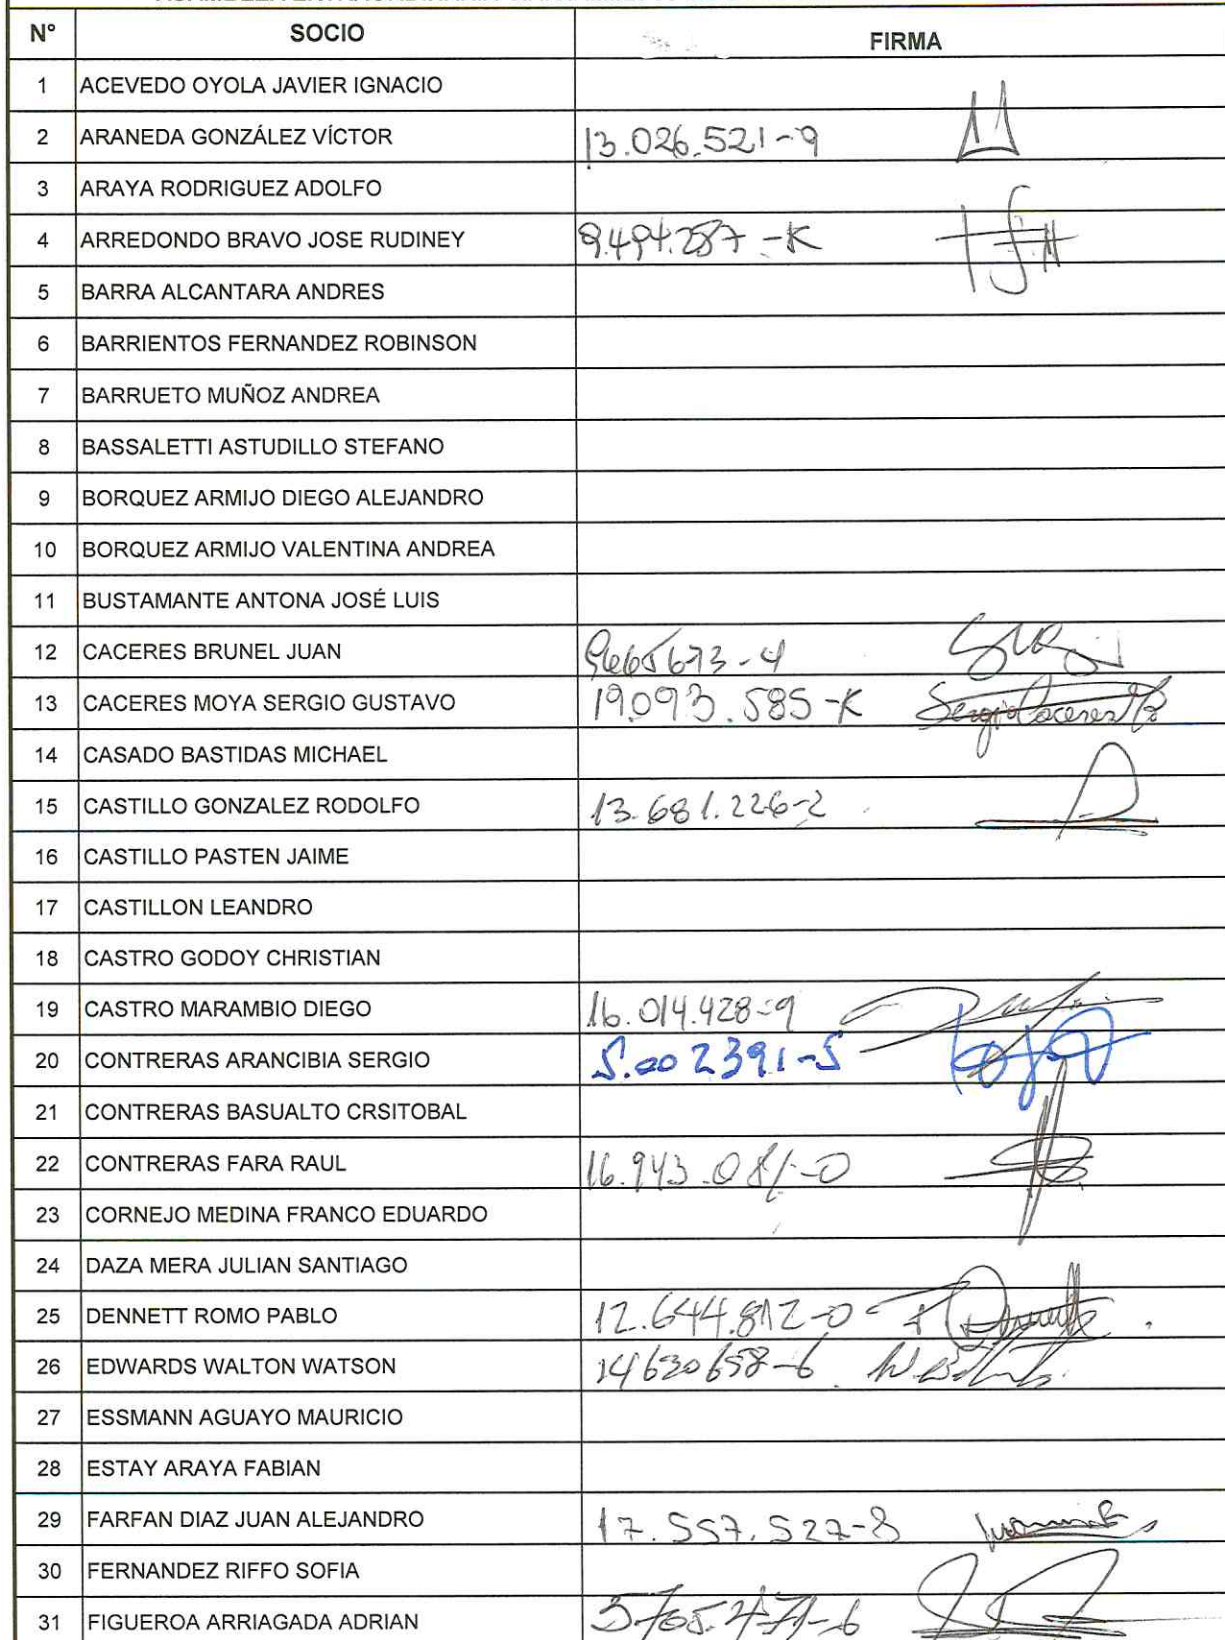 N° SOCIO FIRMA
1 ACEVEDO OYOLA JAVIER IGNACIO
2 ARANEDA GONZÁLEZ VÍCTOR 13.026.521-9
3 ARAYA RODRIGUEZ ADOLFO
4 ARREDONDO BRAVO JOSE RUDINEY 9.494.287-K
5 BARRA ALCANTARA ANDRES
6 BARRIENTOS FERNANDEZ ROBINSON
7 BARRUETO MUÑOZ ANDREA
8 BASSALETTI ASTUDILLO STEFANO
9 BORQUEZ ARMIJO DIEGO ALEJANDRO
10 BORQUEZ ARMIJO VALENTINA ANDREA
11 BUSTAMANTE ANTONA JOSÉ LUIS
12 CACERES BRUNEL JUAN
13 CACERES MOYA SERGIO GUSTAVO 19.093.585-K
14 CASADO BASTIDAS MICHAEL
15 CASTILLO GONZALEZ RODOLFO 13.681.226-2
16 CASTILLO PASTEN JAIME
17 CASTILLON LEANDRO
18 CASTRO GODOY CHRISTIAN
19 CASTRO MARAMBIO DIEGO 16.014.428-9
20 CONTRERAS ARANCIBIA SERGIO 5.002391-5
21 CONTRERAS BASUALTO CRSITOBAL
22 CONTRERAS FARA RAUL 16.943.081-0
23 CORNEJO MEDINA FRANCO EDUARDO
24 DAZA MERA JULIAN SANTIAGO
25 DENNETT ROMO PABLO 12.644.812-0
26 EDWARDS WALTON WATSON 14630658-6
27 ESSMANN AGUAYO MAURICIO
28 ESTAY ARAYA FABIAN
29 FARFAN DIAZ JUAN ALEJANDRO 17.557.527-8
30 FERNANDEZ RIFFO SOFIA
31 FIGUEROA ARRIAGADA ADRIAN